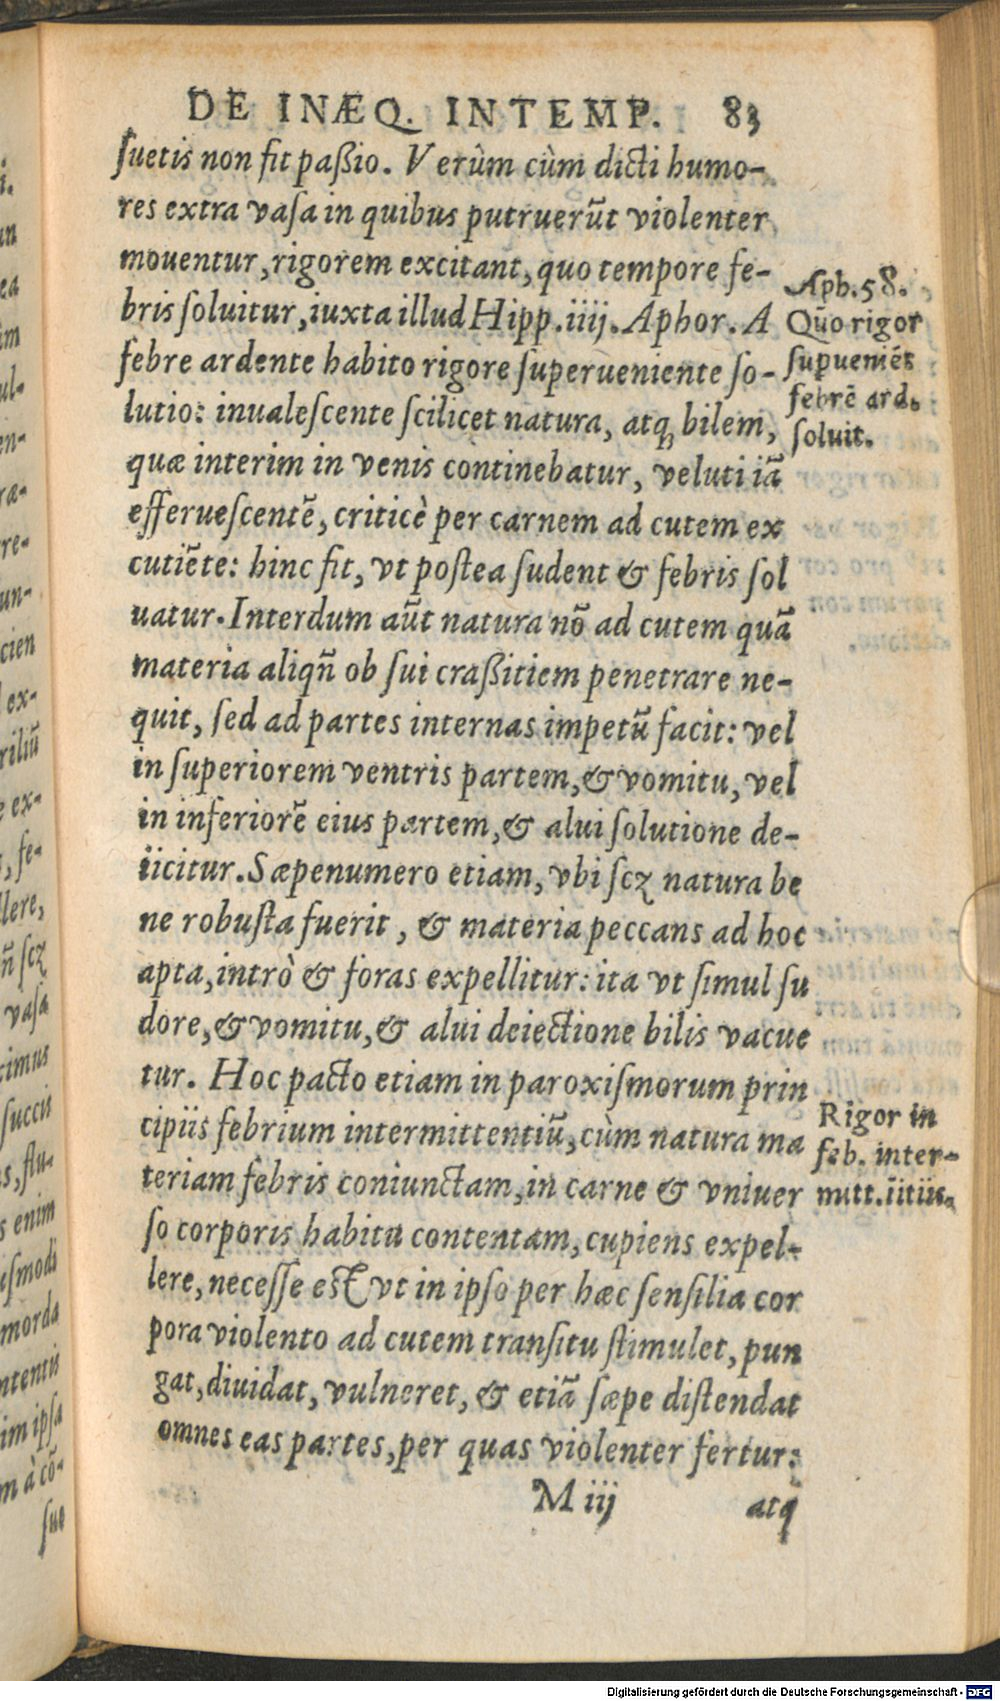 DE INÆQ. INTEMP. 83
ſuetis non fit paßio. Verùm cùm dicti humo-
res extra vaſa in quibus putruerūt violenter
mouentur, rigorem excitant, quo tempore fe-
bris ſoluitur, iuxta illud Hipp. iiij. Aphor. A
febre ardente habito rigore ſuperueniente ſo-
lutio: inualeſcente ſcilicet natura, atq; bilem,
quæ interim in venis continebatur, veluti iā
efferueſcentē, criticè per carnem ad cutem ex
cutiēte: hinc fit, vt poſtea ſudent & febris ſol
uatur. Interdum aūt natura nō ad cutem quā
materia aliqñ ob ſui craßitiem penetrare ne-
quit, ſed ad partes internas impetū facit: vel
in ſuperiorem ventris partem, & vomitu, vel
in inferiorē eius partem, & alui ſolutione de-
iicitur. Sæpenumero etiam, vbi ſcꝫ natura be
ne robuſta fuerit, & materia peccans ad hoc
apta, intrò & foras expellitur: ita vt ſimul ſu
dore, & vomitu, & alui deiectione bilis vacue
tur. Hoc pacto etiam in paroxiſmorum prin
cipiis febrium intermittentiū, cùm natura ma
teriam febris coniunctam, in carne & vniuer
ſo corporis habitu contentam, cupiens expel-
lere, neceſſe eſt vt in ipſo per hæc ſenſilia cor
pora violento ad cutem tranſitu ſtimulet, pun
gat, diuidat, vulneret, & etiā ſæpe diſtendat
omnes eas partes, per quas violenter fertur:
M iij atq̃
Aph. 58.
Quo rigor
ſupueniēs
febrē ard.
ſoluit.
Rigor in
feb. inter-
mitt. iitiis.
i.
un
ea
im
ul-
en-
ræ-
re-
un-
cien
ex-
riliū
e ex-
, fe-
lere,
ñ ſcꝫ
vaſa
cimus
ſuccis
s, flu-
s enim
iſmodi
morda
ntentis
im ipſa
m à cō-
ſue
Digitalisierung gefördert durch die Deutsche Forschungsgemeinschaft - DFG